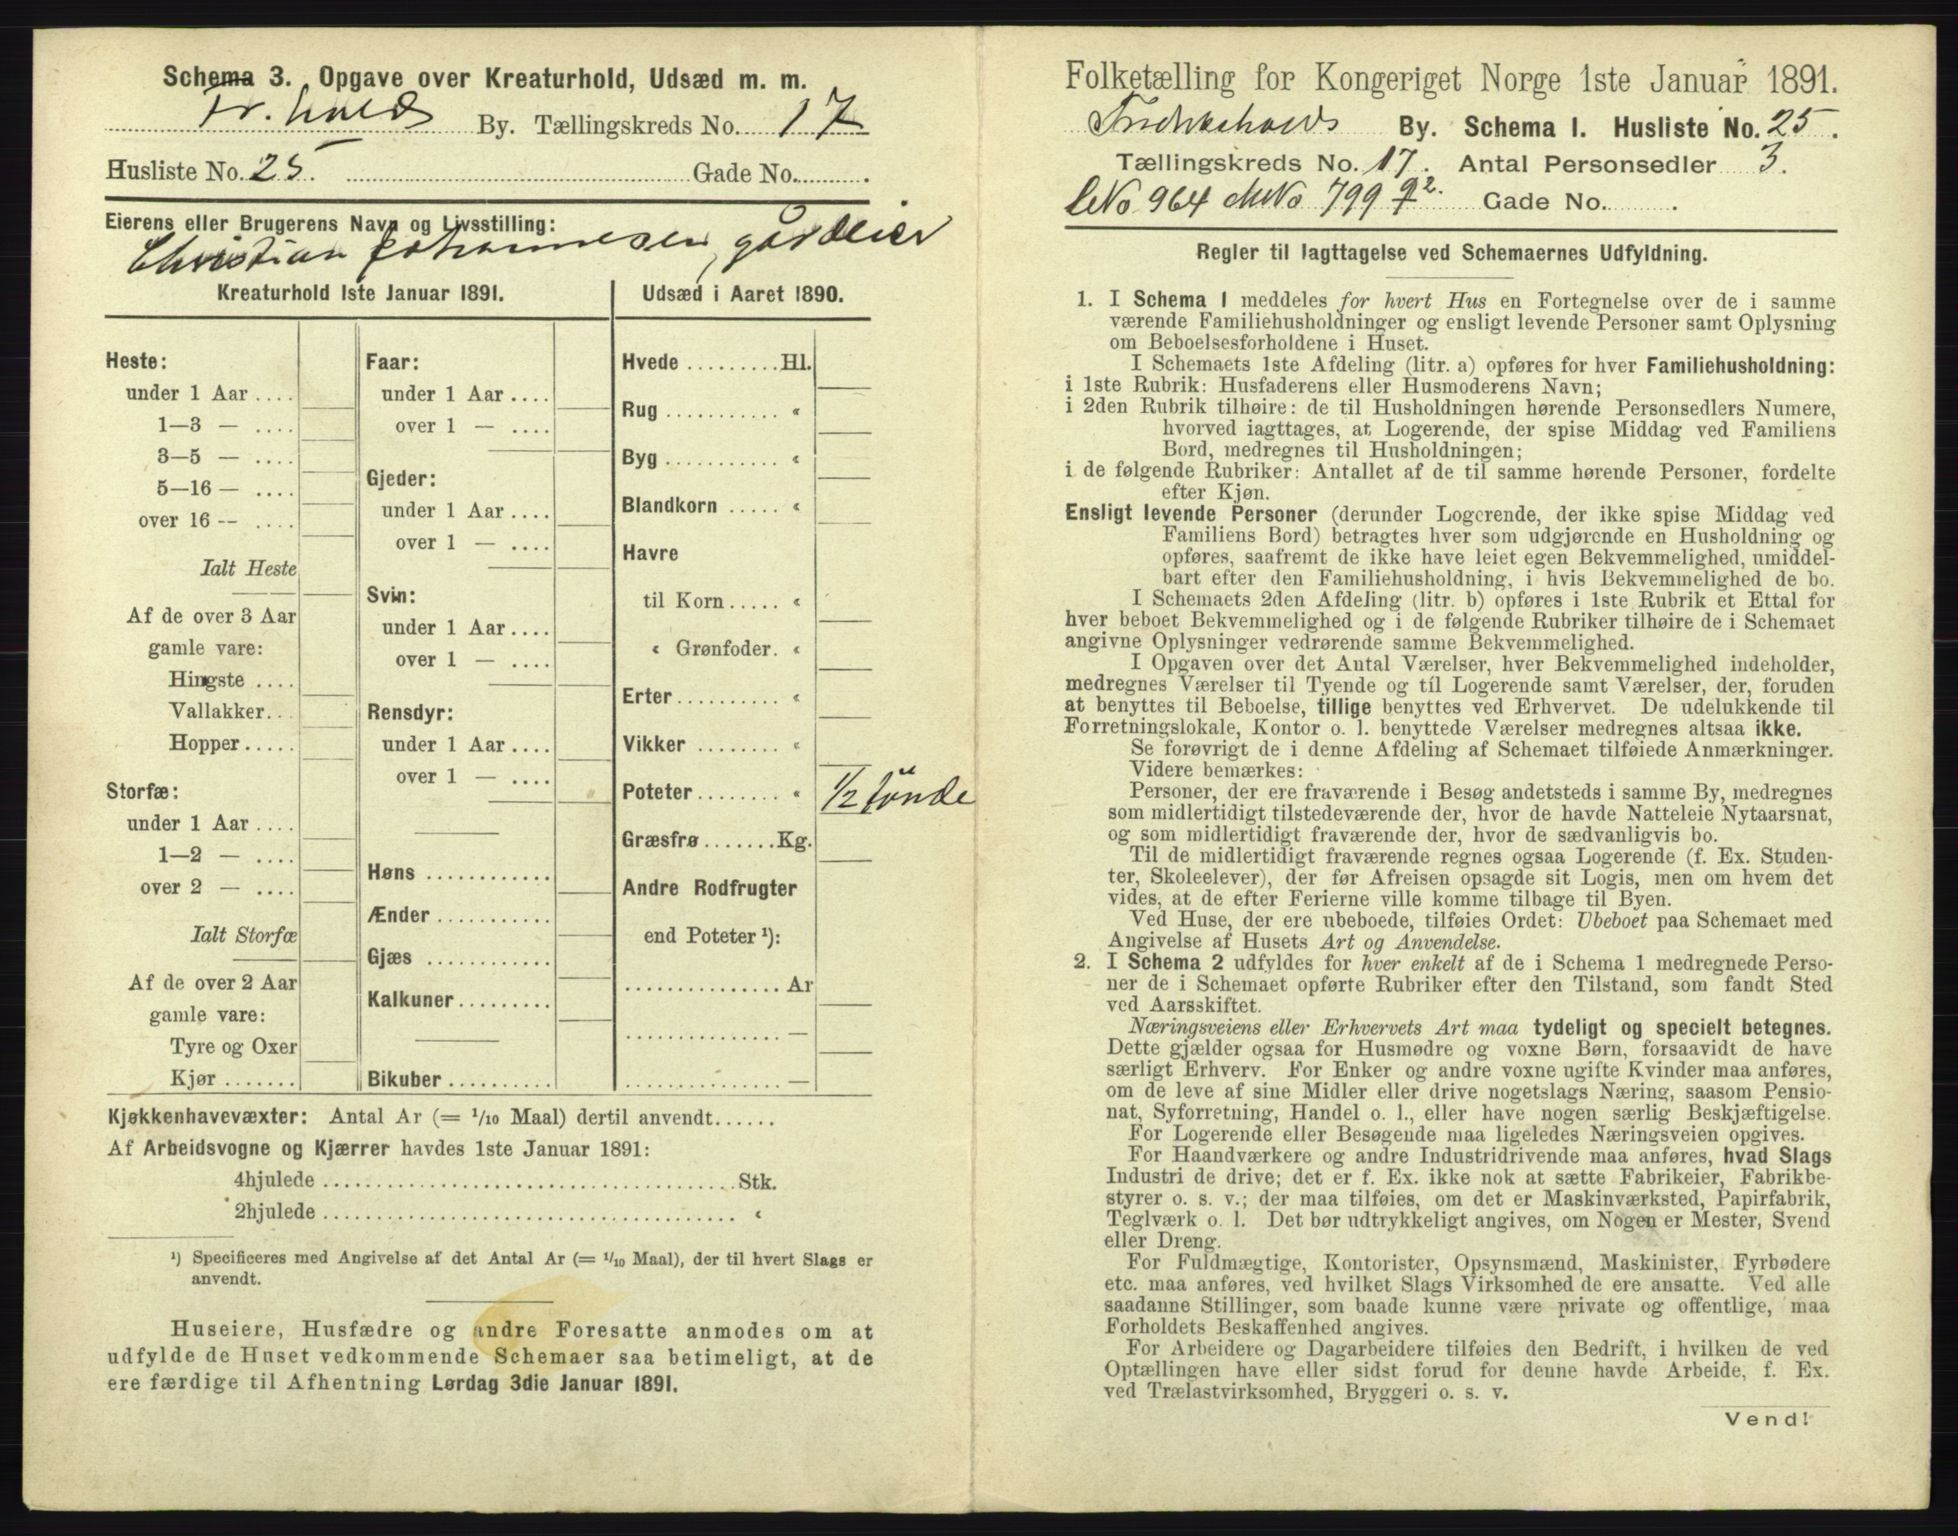 Schema 3. Opgave over Kreaturhold, Udsæd m. m.
Fr.halds By. Tællingskreds No. 17
Husliste No. 25. Gade No. .
Eierens eller Brugerens Navn og Livsstilling:
Christian Johannesen, gårdeier
Kreaturhold 1ste Januar 1891.
Heste:
under 1 Aar ....
1—3 — ....
3—5 — ....
5—16 — ....
over 16 -- ....
Ialt Heste
Af de over 3 Aar
gamle vare:
Hingste ....
Vallakker...
Hopper.....
Storfæ:
under 1 Aar ....
1—2 — ....
over 2 — ....
Ialt Storfæ
Af de over 2 Aar
gamle vare:
Tyre og Oxer
Kjør .......
Faar:
under 1 Aar ....
over 1 — ....
Gjeder:
under 1 Aar ....
over 1 — ....
Svin:
under 1 Aar ....
over 1 — ....
Rensdyr:
under 1 Aar ....
over 1 — ....
Høns ............
Ænder ...........
Gjæs ............
Kalkuner.........
Bikuber ..........
Udsæd i Aaret 1890.
Hvede .........Hl.
Rug ........... «
Byg ........... «
Blandkorn ..... «
Havre
til Korn..... «
« Grønfoder. «
Erter.......... «
Vikker ........ «
Poteter........ « 1/2 tönde
Græsfrø.......Kg.
Andre Rodfrugter
end Poteter ¹):
............... Ar
............... —
............... —
Kjøkkenhavevæxter: Antal Ar (= 1/10 Maal) dertil anvendt......
Af Arbeidsvogne og Kjærrer havdes 1ste Januar 1891:
4hjulede ........................................Stk.
2hjulede ........................................ «
¹) Specificeres med Angivelse af det Antal Ar (= 1/10 Maal), der til hvert Slags er
anvendt.
Huseiere, Husfædre og andre Foresatte anmodes om at
udfylde de Huset vedkommende Schemaer saa betimeligt, at de
ere færdige til Afhentning Lørdag 3die Januar 1891.
Folketælling for Kongeriget Norge 1ste Januar 1891.
Fredrikshalds By. Schema I. Husliste No. 25.
Tællingskreds No. 17. Antal Personsedler 3.
LNo 964 MNo 799 q2. Gade No. .
Regler til Iagttagelse ved Schemaernes Udfyldning.
1. I Schema 1 meddeles for hvert Hus en Fortegnelse over de i samme
værende Familiehusholdninger og ensligt levende Personer samt Oplysning
om Beboelsesforholdene i Huset.
I Schemaets 1ste Afdeling (litr. a) opføres for hver Familiehusholdning:
i 1ste Rubrik: Husfaderens eller Husmoderens Navn;
i 2den Rubrik tilhøire: de til Husholdningen hørende Personsedlers Numere,
hvorved iagttages, at Logerende, der spise Middag ved Familiens
Bord, medregnes til Husholdningen;
i de følgende Rubriker: Antallet af de til samme hørende Personer, fordelte
efter Kjøn.
Ensligt levende Personer (derunder Logerende, der ikke spise Middag ved
Familiens Bord) betragtes hver som udgjørende en Husholdning og
opføres, saafremt de ikke have leiet egen Bekvemmelighed, umiddel-
bart efter den Familiehusholdning, i hvis Bekvemmelighed de bo.
I Schemaets 2den Afdeling (litr. b) opføres i 1ste Rubrik et Ettal for
hver beboet Bekvemmelighed og i de følgende Rubriker tilhøire de i Schemaet
angivne Oplysninger vedrørende samme Bekvemmelighed.
I Opgaven over det Antal Værelser, hver Bekvemmelighed indeholder,
medregnes Værelser til Tyende og til Logerende samt Værelser, der, foruden
at benyttes til Beboelse, tillige benyttes ved Erhvervet. De udelukkende til
Forretningslokale, Kontor o. l. benyttede Værelser medregnes altsaa ikke.
Se forøvrigt de i denne Afdeling af Schemaet tilføiede Anmærkninger.
Videre bemærkes:
Personer, der ere fraværende i Besøg andetsteds i samme By, medregnes
som midlertidigt tilstedeværende der, hvor de havde Natteleie Nytaarsnat,
og som midlertidigt fraværende der, hvor de sædvanligvis bo.
Til de midlertidigt fraværende regnes ogsaa Logerende (f. Ex. Studen-
ter, Skoleelever), der før Afreisen opsagde sit Logis, men om hvem det
vides, at de efter Ferierne ville komme tilbage til Byen.
Ved Huse, der ere ubeboede, tilføies Ordet: Ubeboet paa Schemaet med
Angivelse af Husets Art og Anvendelse.
2. I Schema 2 udfyldes for hver enkelt af de i Schema 1 medregnede Perso-
ner de i Schemaet opførte Rubriker efter den Tilstand, som fandt Sted
ved Aarsskiftet.
Næringsveiens eller Erhvervets Art maa tydeligt og specielt betegnes.
Dette gjælder ogsaa for Husmødre og voxne Børn, forsaavidt de have
særligt Erhverv. For Enker og andre voxne ugifte Kvinder maa anføres,
om de leve af sine Midler eller drive nogetslags Næring, saasom Pensio-
nat, Syforretning, Handel o. l., eller have nogen særlig Beskjæftigelse.
For Logerende eller Besøgende maa ligeledes Næringsveien opgives.
For Haandværkere og andre Industridrivende maa anføres, hvad Slags
Industri de drive; det er f. Ex. ikke nok at sætte Fabrikeier, Fabrikbe-
styrer o. s. v.; der maa tilføies, om det er Maskinværksted, Papirfabrik,
Teglværk o. l. Det bør udtrykkeligt angives, om Nogen er Mester, Svend
eller Dreng.
For Fuldmægtige, Kontorister, Opsynsmænd, Maskinister, Fyrbødere
etc. maa anføres, ved hvilket Slags Virksomhed de ere ansatte. Ved alle
saadanne Stillinger, som baade kunne være private og offentlige, maa
Forholdets Beskaffenhed angives.
For Arbeidere og Dagarbeidere tilføies den Bedrift, i hvilken de ved
Optællingen have eller sidst forud for denne havde Arbeide, f. Ex.
ved Trælastvirksomhed, Bryggeri o. s. v.
Vend!